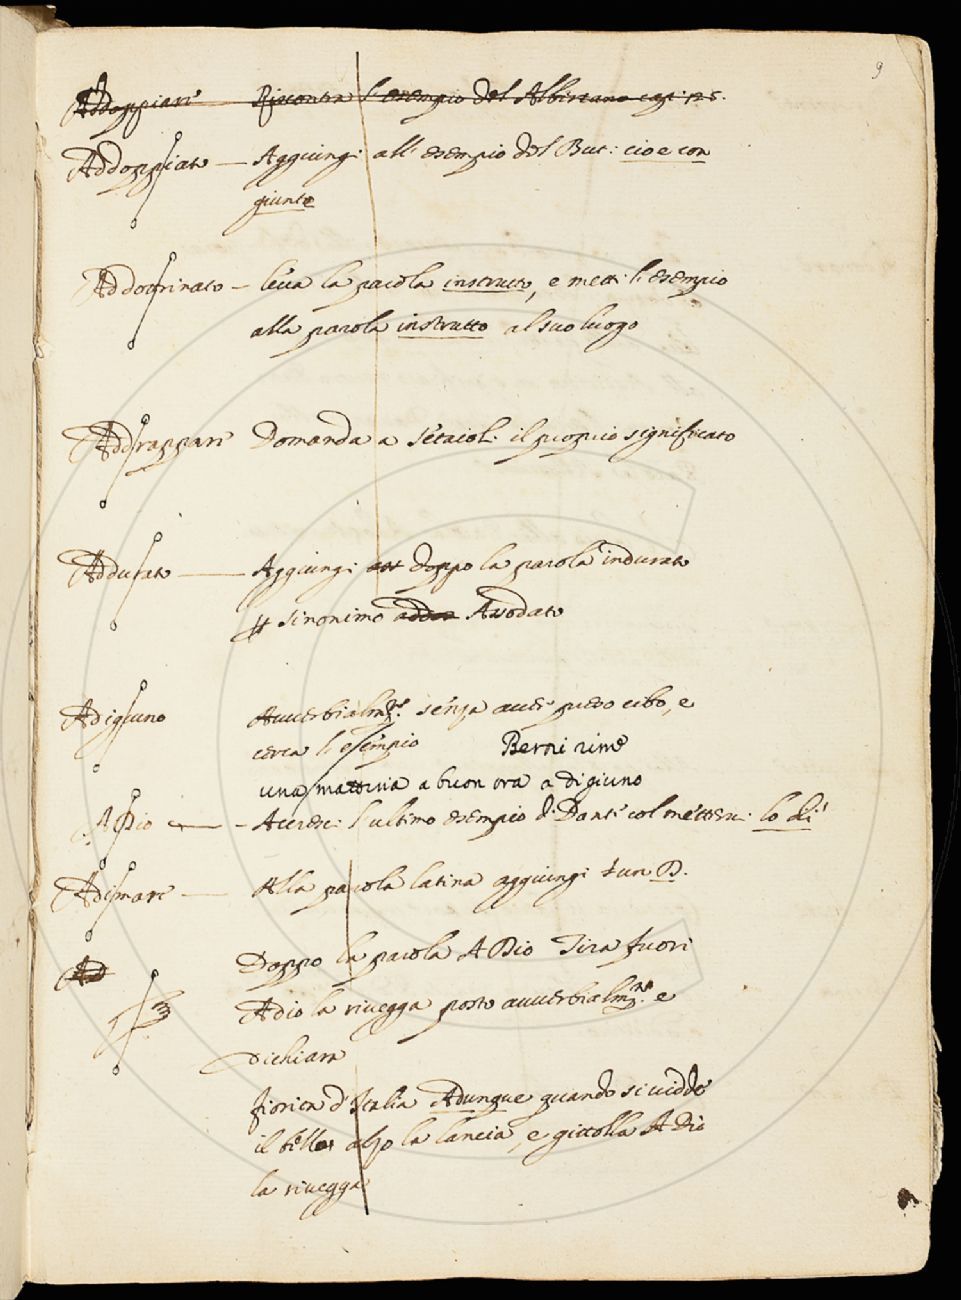 9
Addoppiare Riscontra l'esempio del Albertano cap: 125.
Addoppiato — Aggiungi all'esempio del But: cioe con
giunto
Addottrinato — leva la parola instrutto, e metti l'esempio
alla parola instrutto al suo luogo
Addrappare Domanda a setaioli il proprio significato
Addurato — Aggiungi doppo la parola indurato
sinonimo Assodato
Adigiuno Avverbialmte. senza aver preso cibo, e
cerca l'esempio Berni rime
una mattina a buon ora a digiuno
Adio — Accresci l'ultimo esempio di Dante col metterci lo dì
Adimare — Alla parola latina aggiungi un D.
Doppo la parola A Dio Tira fuori
Ad
Adio la rivegga posto avverbialmte. e
dichiara
fiorita d'Italia Adunque quando si vidde
il bello alzo la lancia, e gittolla A dio
la rivegga